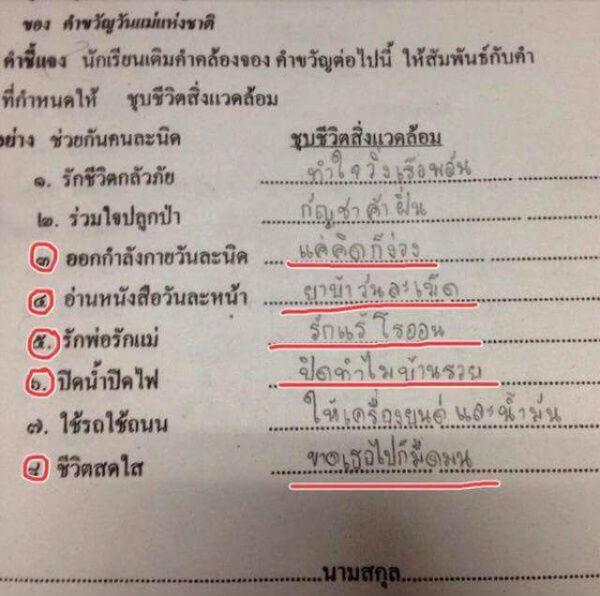 ของ คำขวัญวันแม่แห่งชาติ
คำชี้แจง นักเรียนเติมคำคล้องจอง คำขวัญต่อไปนี้ ให้สัมพันธ์กับคำ
ที่กำหนดให้ ชุบชีวิตสิ่งแวดล้อม
อย่าง ช่วยกันคนละนิด ชุบชีวิตสิ่งแวดล้อม
๑. รักชีวิตกลัวภัย ทำใจวิ่งเธอพล่น
๒. ร่วมใจปลูกป่า กัญชาค้าฝิ่น
๓ ออกกำลังกายวันละนิด แค่คิดก็ง่วง
๔ อ่านหนังสือวันละหน้า ยาบ้าวันละเม็ด
๕. รักพ่อรักแม่ รักแร้โรออน
๖. ปิดน้ำปิดไฟ ปิดทำไมบ้านรวย
๗. ใช้รถใช้ถนน ให้เครื่องยนต์และน้ำมัน
๘ ชีวิตสดใส ขาดเธอไปก็มืดมน
นามสกุล